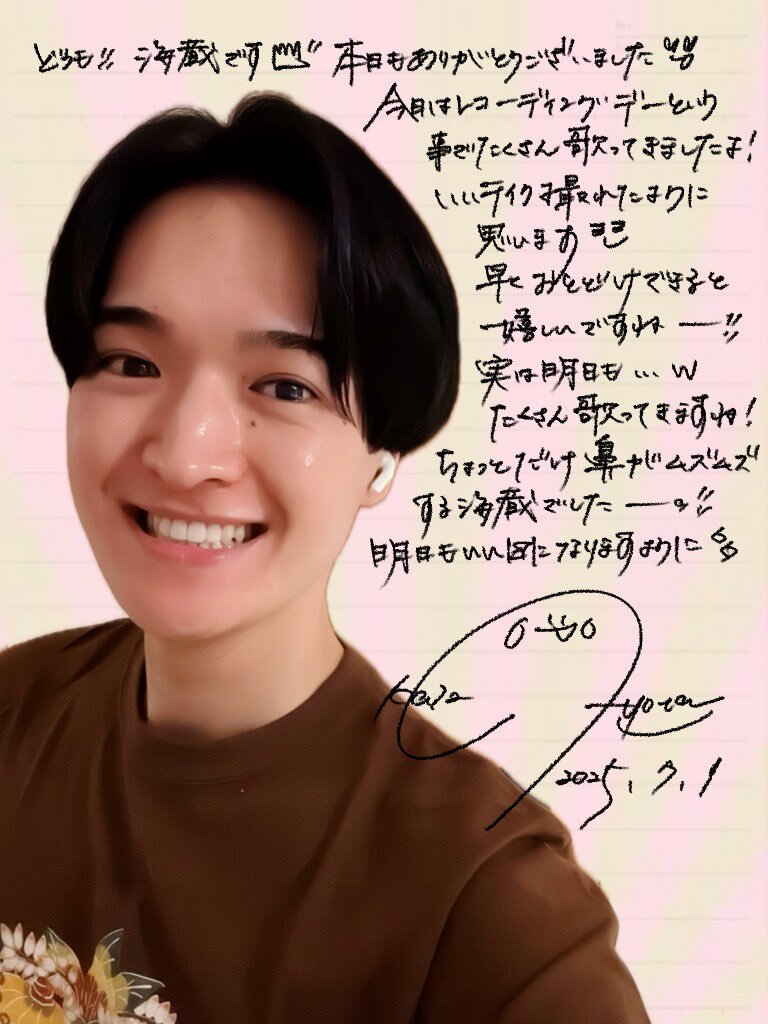 どうも!! 海蔵です 本日もありがとうございました
今日はレコーディングデーという
事でたくさん歌ってきましたよ!
いいテイクが撮れたように
思います
早くおとどけできると
嬉しいですね ー!!
実は明日も...w
たくさん歌ってきますね!
ちょっとだけ鼻がムズムズ
する海蔵でしたー。!!
明日もいい日になりますように
2025.7.1